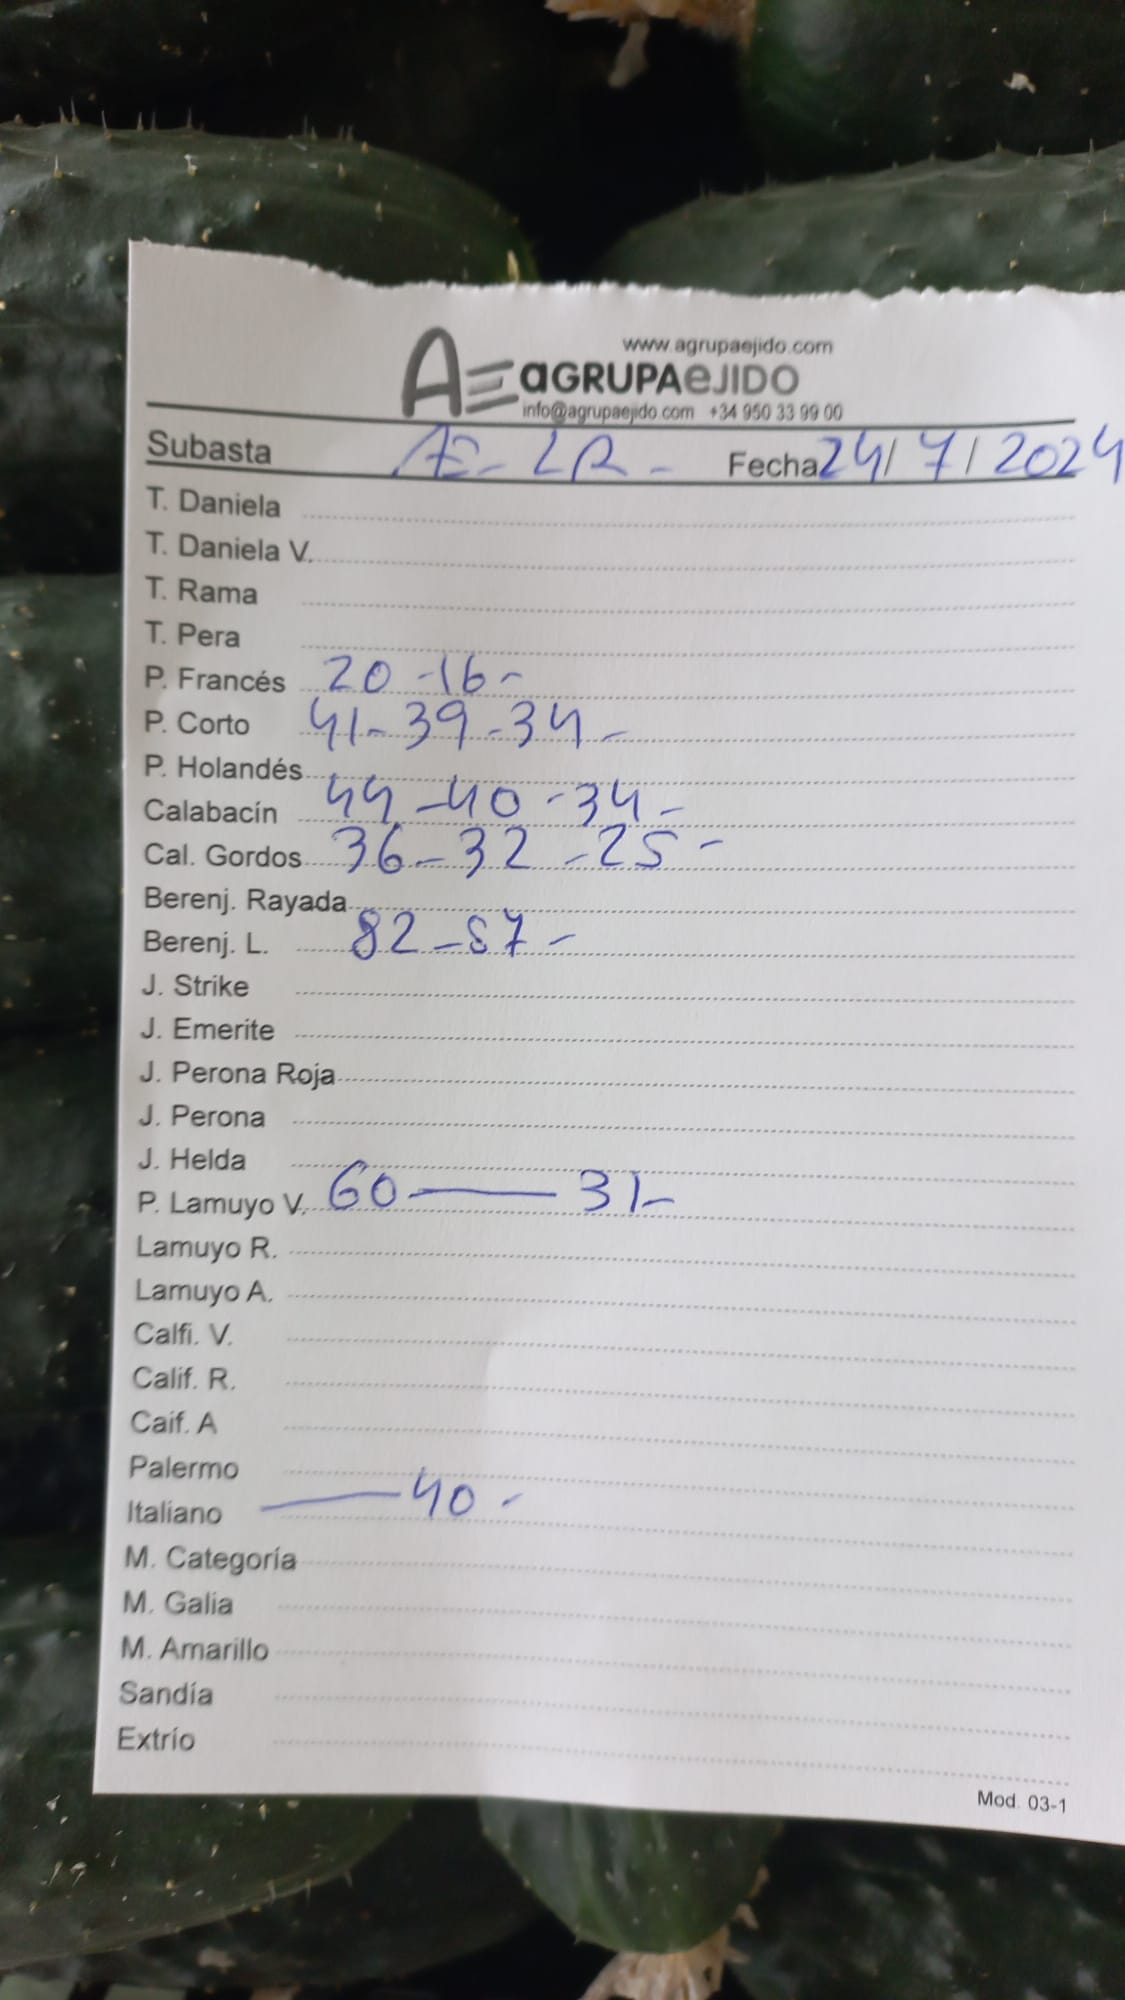 www.agrupaejido.com
AE aGRUPAeJIDO
info@agrupaejido.com +34 950 33 99 00
Subasta AE - LR - Fecha 24/7/2024
T. Daniela
T. Daniela V.
T. Rama
T. Pera
P. Francés 20 -16 -
P. Corto 41 - 39 - 34 -
P. Holandés
Calabacín 44 - 40 - 34 -
Cal. Gordos 36 - 32 - 25 -
Berenj. Rayada
Berenj. L. 82 - 57 -
J. Strike
J. Emerite
J. Perona Roja
J. Perona
J. Helda
P. Lamuyo V. 60 — 31 -
Lamuyo R.
Lamuyo A.
Calfi. V.
Calif. R.
Caif. A
Palermo
Italiano — 40 -
M. Categoría
M. Galia
M. Amarillo
Sandía
Extrío
Mod. 03-1